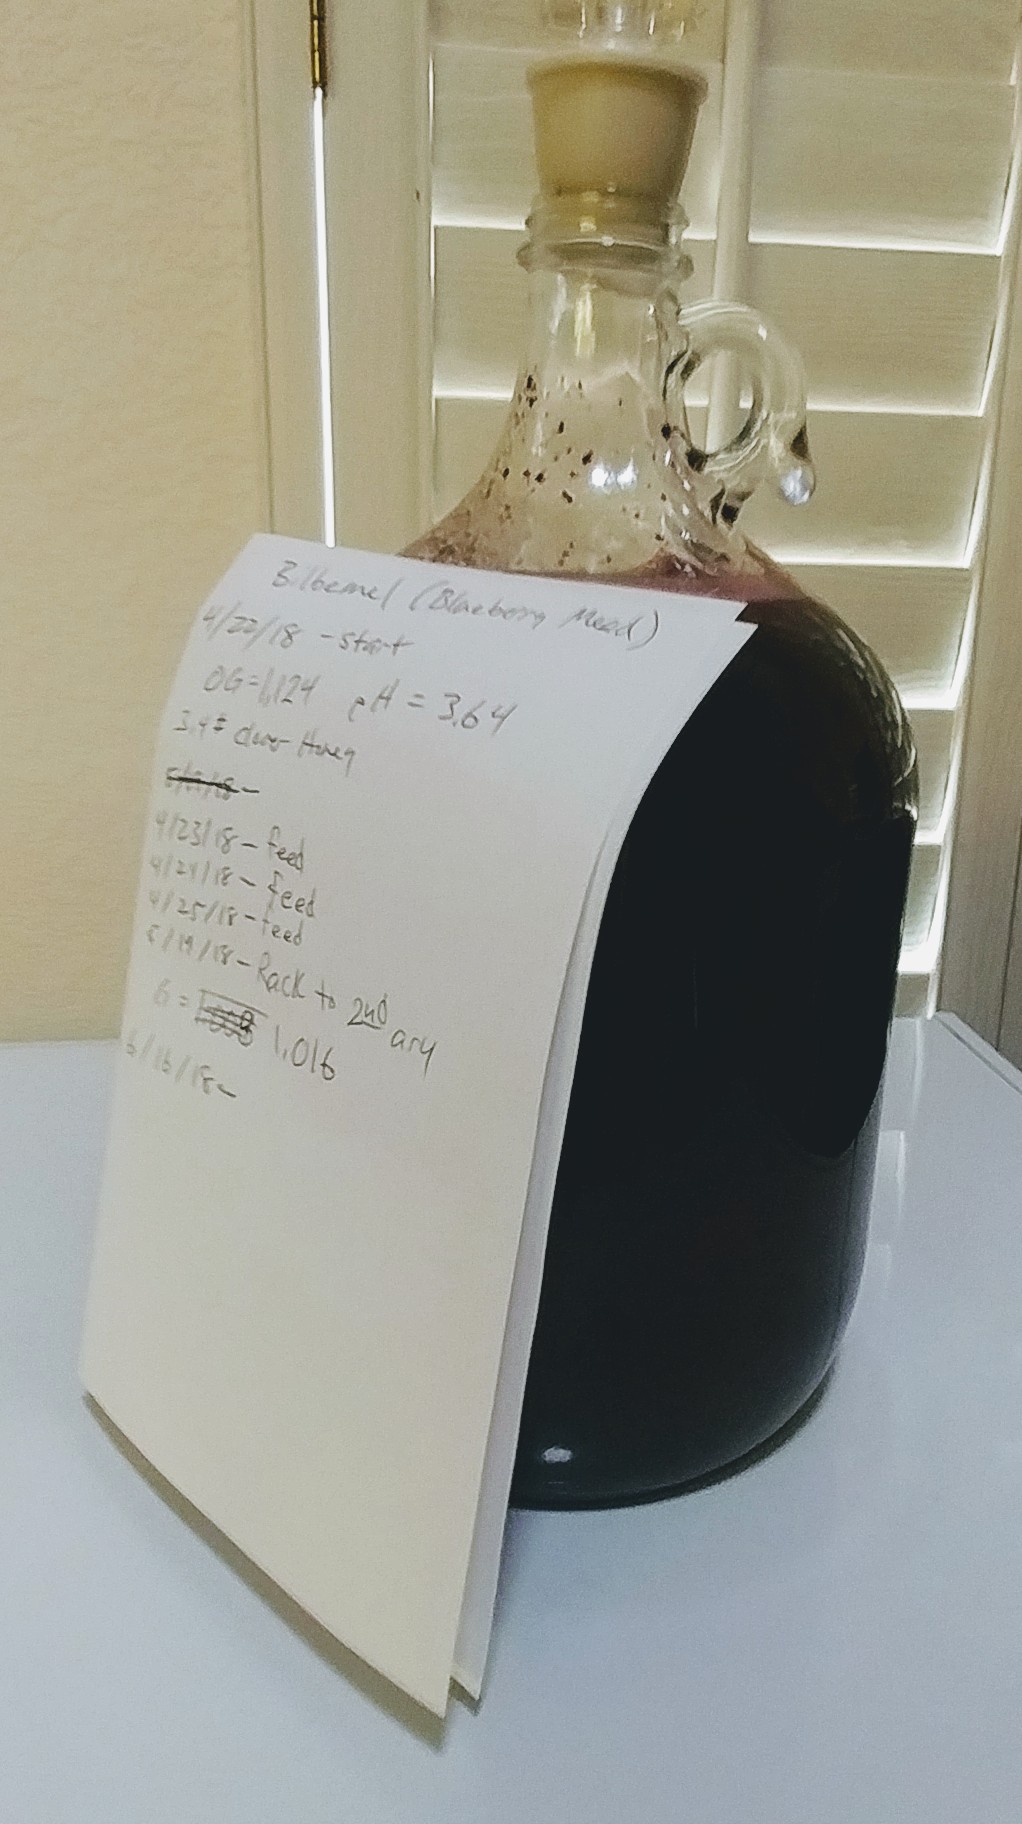 Bilbemel (Blueberry Mead)
4/22/18 - start
OG = 1.124 pH = 3.64
3.4# clover Honey
4/23/18 - feed
4/24/18 - feed
4/25/18 - feed
5/19/18 - Rack to 2nd ary
G = 1.016
6/16/18 -